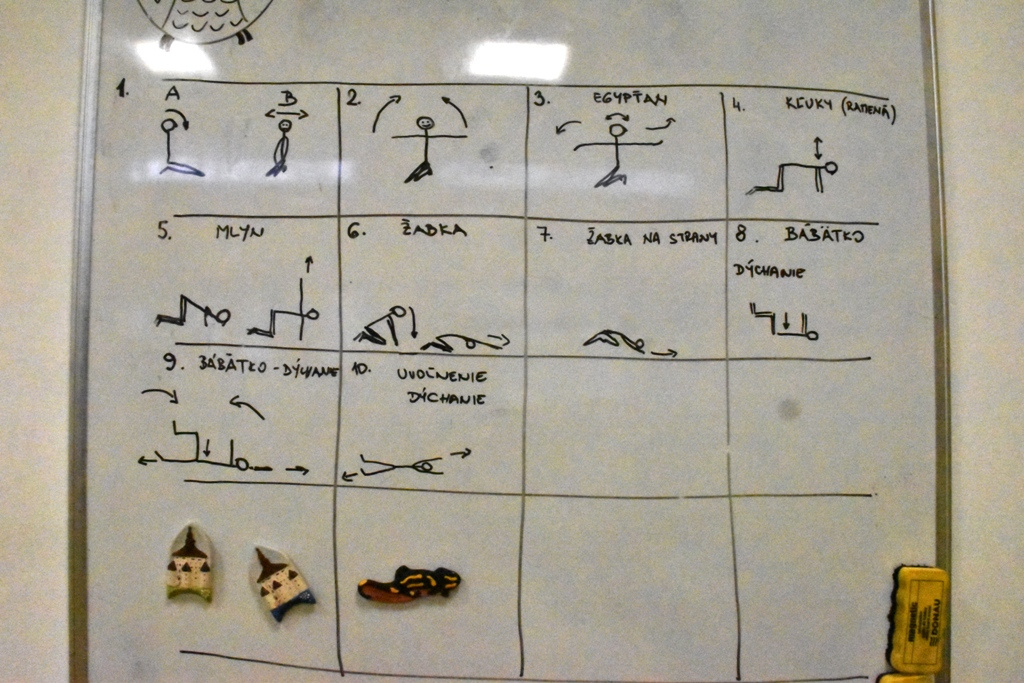 1. A B
2.
3. EGYPŤAN
4. KĽUKY (RAMENÁ)
5. MLYN
6. ŽABKA
7. ŽABKA NA STRANY
8. BÁBÄTKO
DÝCHANIE
9. BÁBÄTKO - DÝCHANIE
10. UVOĽNENIE
DÝCHANIE
magnetic
DONAU